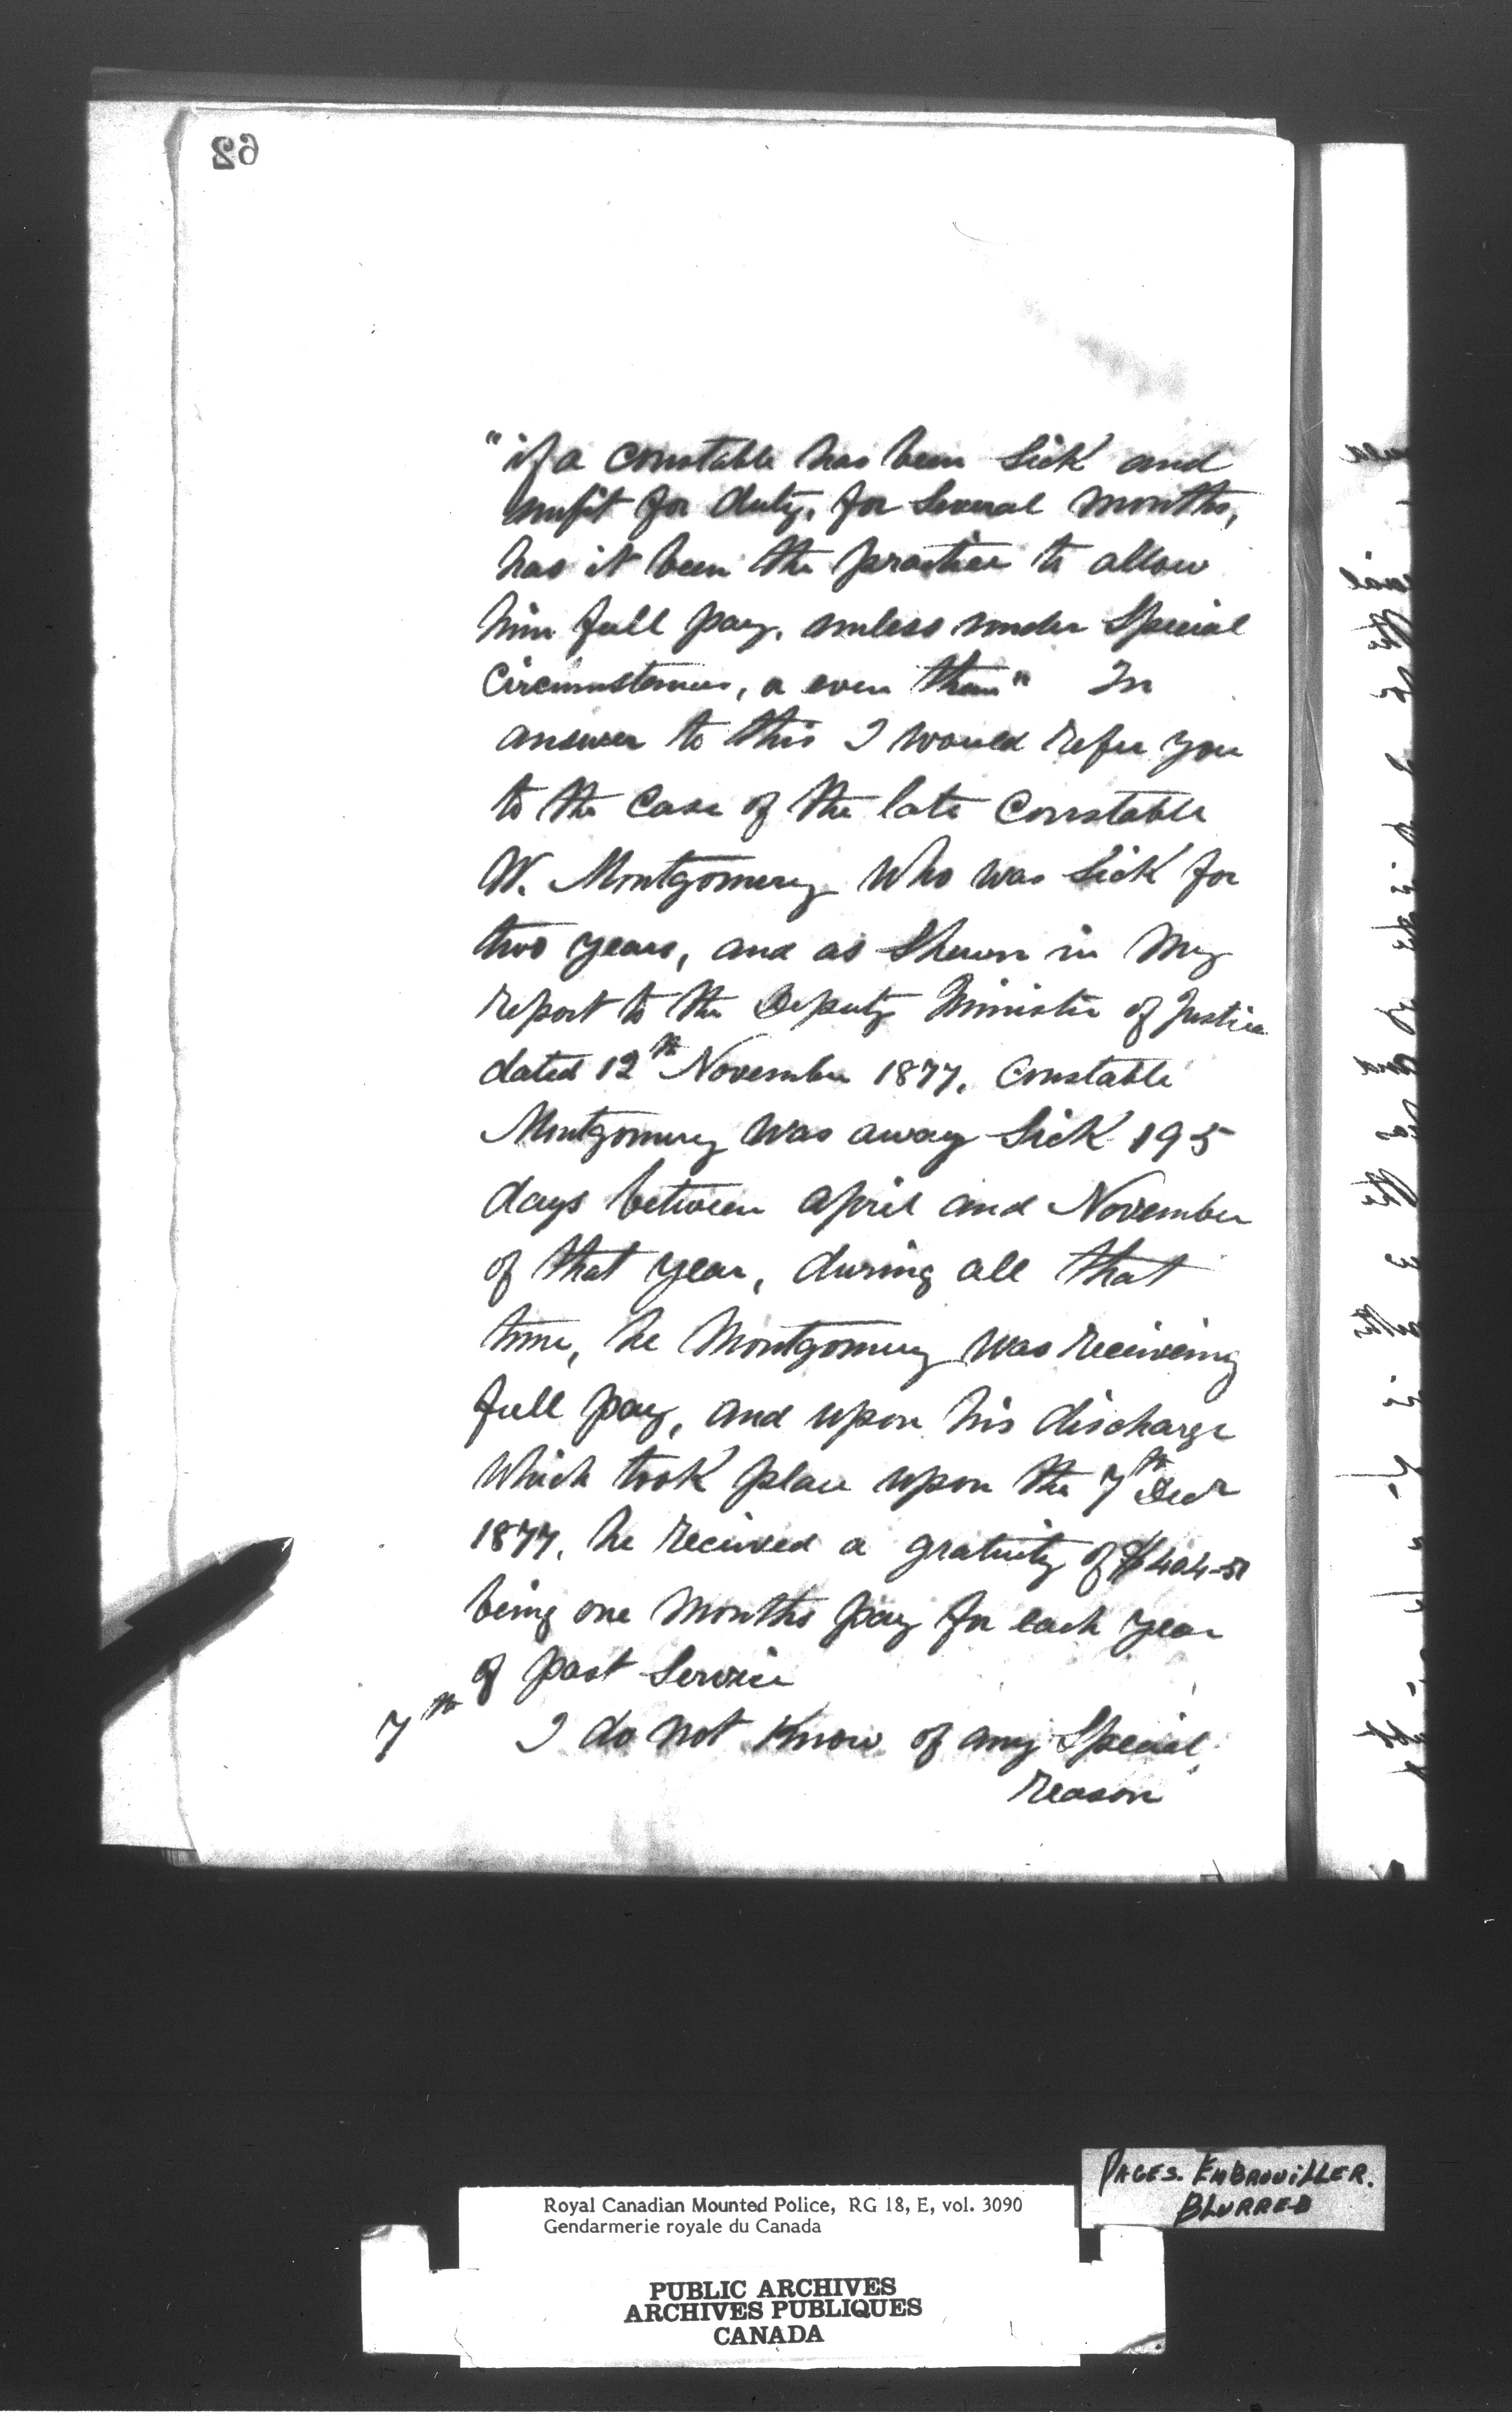 62
"if a constable has been sick and
unfit for duty, for several months,
has it been the practice to allow
him full pay, unless under Special
Circumstances, or even then" In
answer to this I would refer you
to the Case of the late Constable
W. Montgomery who was sick for
two years, and as shewn in my
report to the Deputy Minister of Justice
dated 12th November 1877, Constable
Montgomery was away sick 195
days between April and November
of that year, during all that
time, he Montgomery was receiving
full pay, and upon his discharge
which took place upon the 7th Decr
1877, he received a gratuity of $404-51
being one months pay for each year
of past service
7th I do not know of any Special
reason
PAGES. EMBROUILLER.
BLURRED
Royal Canadian Mounted Police, RG 18, E, vol. 3090
Gendarmerie royale du Canada
PUBLIC ARCHIVES
ARCHIVES PUBLIQUES
CANADA